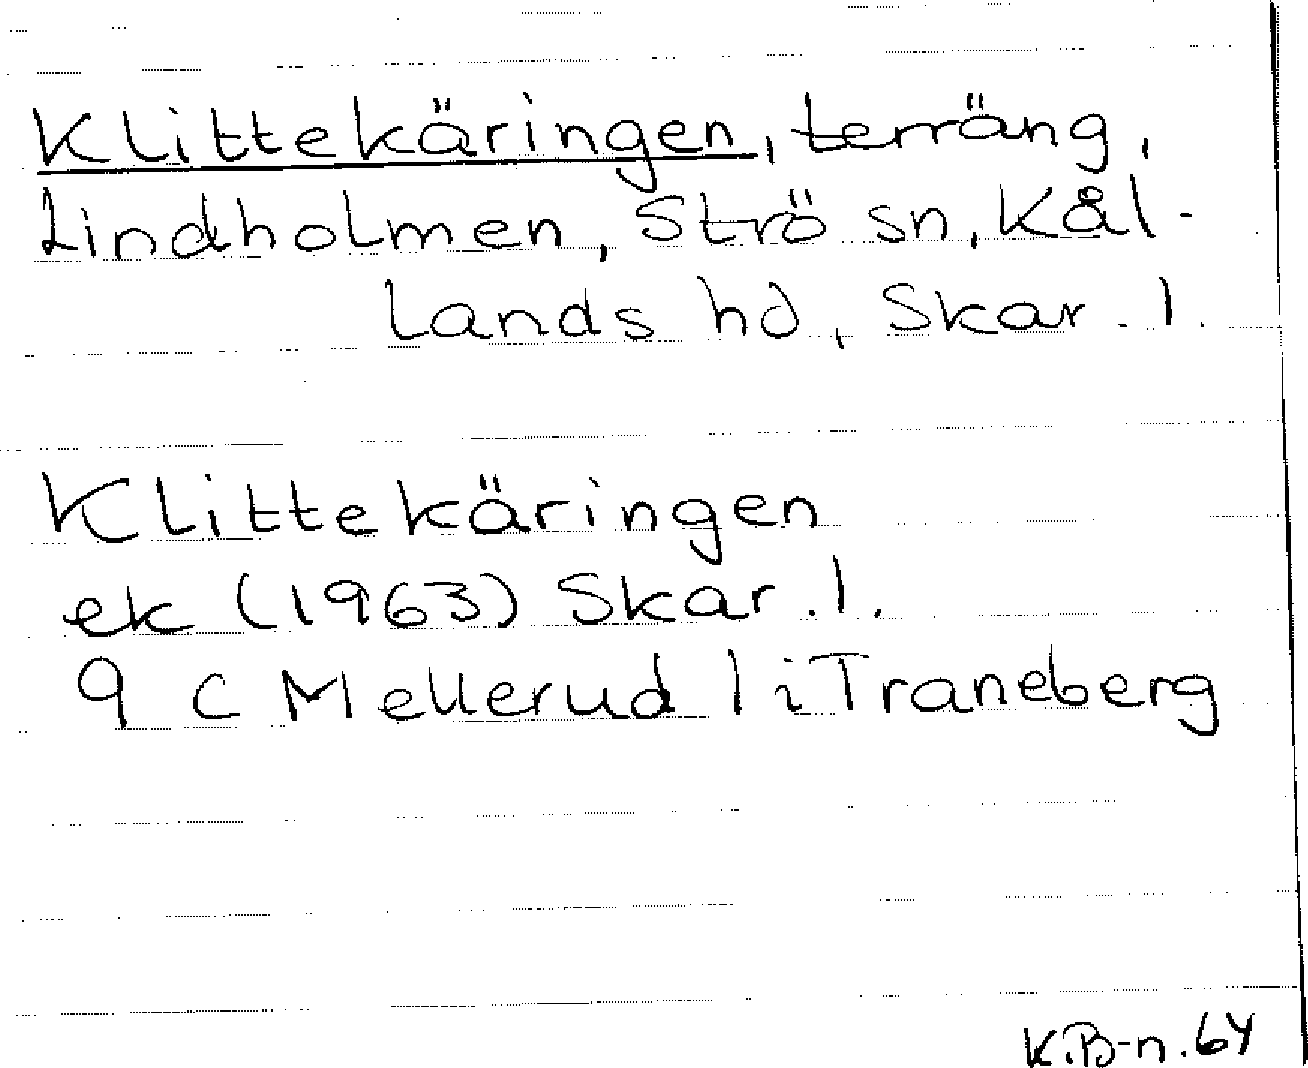 Klittekäringen, terräng,
Lindholmen, Strö sn, Kål-
lands hd, Skar. l.
Klittekäringen
ek (1963) Skar. l.
9 C Mellerud 1 i Traneberg
K.B-n. 64